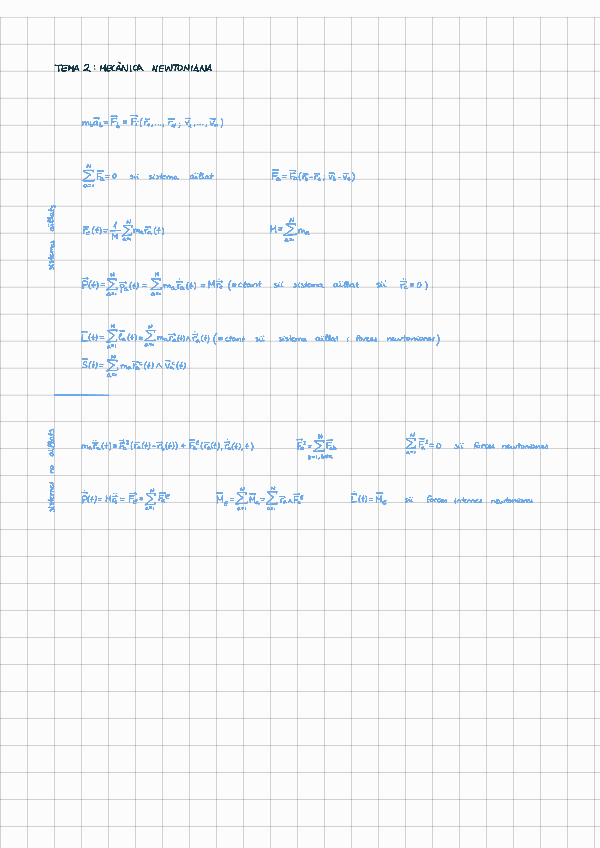 TEMA 2: MECÀNICA NEWTONIANA
sistemes aïllats
m_b a⃗_b = F⃗_b = F⃗_b(r⃗_1,..., r⃗_N; v⃗_1,..., v⃗_N)
∑_{a=1}^{N} F⃗_a = 0 sii sistema aïllat F⃗_a = F⃗_a(r⃗_b - r⃗_c, v⃗_b - v⃗_c)
r⃗_c(t) = 1/M ∑_{a=1}^{N} m_a r⃗_a(t) M = ∑_{a=1}^{N} m_a
P⃗(t) = ∑_{a=1}^{N} p⃗_a(t) = ∑_{a=1}^{N} m_a ṙ⃗_a(t) = M ṙ⃗_c (= ctant sii sistema aïllat sii r̈⃗_c = 0)
L⃗(t) = ∑_{a=1}^{N} l⃗_a(t) = ∑_{a=1}^{N} m_a r⃗_a(t) ∧ ṙ⃗_a(t) (= ctant sii sistema aïllat i forces newtonianes)
S⃗(t) = ∑_{a=1}^{N} m_a r⃗_a^c(t) ∧ v⃗_a^c(t)
sistemes no aïllats
m_a r̈⃗_a(t) = F⃗_a^I(r⃗_a(t) - r⃗_b(t)) + F⃗_a^E(r⃗_a(t), ṙ⃗_a(t), t) F⃗_a^I = ∑_{b=1, b≠a}^{N} F⃗_ab ∑_{a=1}^{N} F⃗_a^I = 0 sii forces newtonianes
Ṗ⃗(t) = M r̈⃗_c = F⃗_E = ∑_{a=1}^{N} F⃗_a^E M⃗_E = ∑_{a=1}^{N} M⃗_a = ∑_{a=1}^{N} r⃗_a ∧ F⃗_a^E L̇⃗(t) = M⃗_E sii forces internes newtonianes